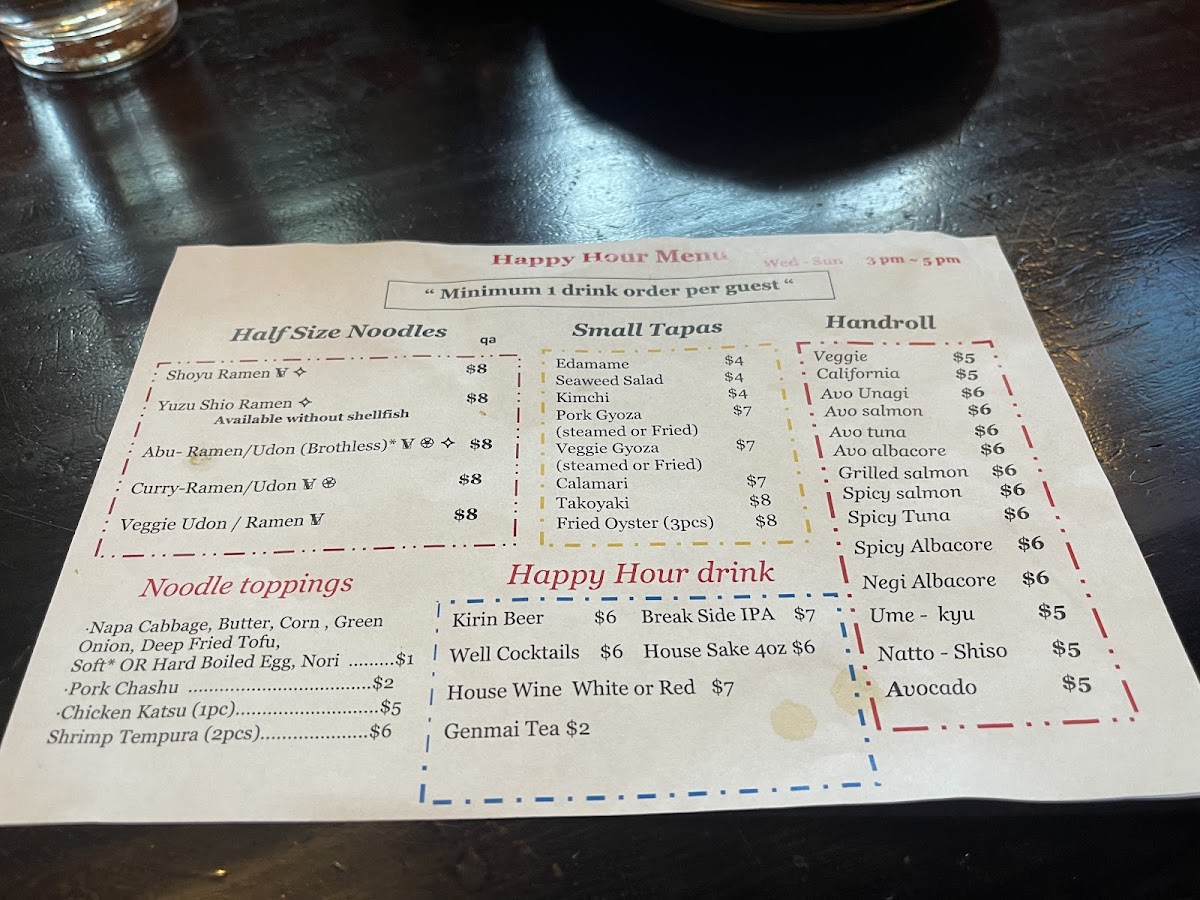 Happy Hour Menu Wed - Sun 3 pm ~ 5 pm
“ Minimum 1 drink order per guest “
Half Size Noodles
qa
Shoyu Ramen V ✧ $8
Yuzu Shio Ramen ✧ $8
Available without shellfish
Abu- Ramen/Udon (Brothless)* V ֍ ✧ $8
Curry-Ramen/Udon V ֍ $8
Veggie Udon / Ramen V $8
Noodle toppings
·Napa Cabbage, Butter, Corn , Green
Onion, Deep Fried Tofu,
Soft* OR Hard Boiled Egg, Nori .........$1
·Pork Chashu ...................................$2
·Chicken Katsu (1pc)...........................$5
Shrimp Tempura (2pcs)....................$6
Small Tapas
Edamame $4
Seaweed Salad $4
Kimchi $4
Pork Gyoza $7
(steamed or Fried)
Veggie Gyoza $7
(steamed or Fried)
Calamari $7
Takoyaki $8
Fried Oyster (3pcs) $8
Happy Hour drink
Kirin Beer $6 Break Side IPA $7
Well Cocktails $6 House Sake 4oz $6
House Wine White or Red $7
Genmai Tea $2
Handroll
Veggie $5
California $5
Avo Unagi $6
Avo salmon $6
Avo tuna $6
Avo albacore $6
Grilled salmon $6
Spicy salmon $6
Spicy Tuna $6
Spicy Albacore $6
Negi Albacore $6
Ume - kyu $5
Natto - Shiso $5
Avocado $5